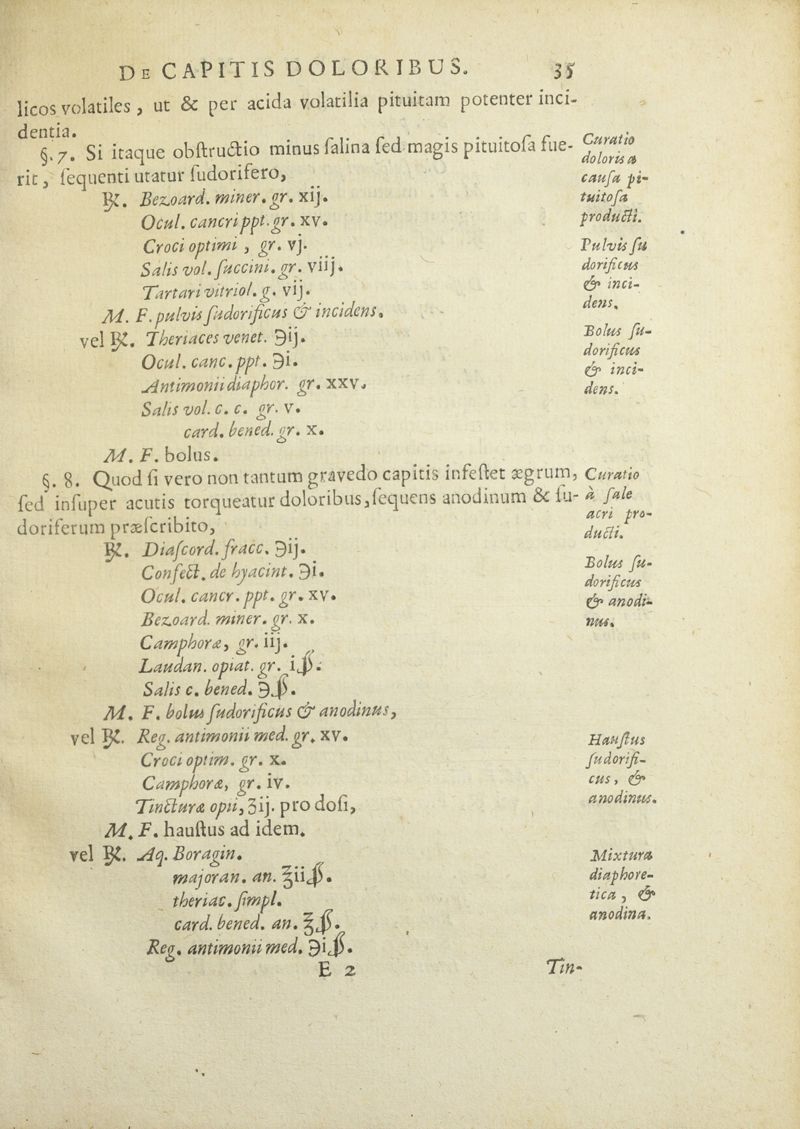 De CAPITIS DOLORIBUS. 35
licos volatiles, ut & per acida volatilia pituitam potenter inci-
dentia.
§. 7. Si itaque obſtructio minus ſalina ſed magis pituitoſa fue-
rit, ſequenti utatur ſudorifero,
Curatio
doloris a
cauſa pi-
tuitoſa
producti.
℞. Bezoard. miner. gr. xij.
Ocul. cancri ppt. gr. xv.
Croci optimi, gr. vj.
Salis vol. ſuccini. gr. viij.
Tartari vitriol. g. vij.
M. F. pulvis ſudorificus & incidens.
Pulvis ſu
dorificus
& inci-
dens.
vel ℞. Theriaces venet. ℈ij.
Ocul. canc. ppt. ℈i.
Antimonii diaphor. gr. xxv.
Salis vol. c. c. gr. v.
card. bened. gr. x.
M. F. bolus.
Bolus ſu-
dorificus
& inci-
dens.
§. 8. Quod ſi vero non tantum gravedo capitis infeſtet ægrum,
ſed inſuper acutis torqueatur doloribus, ſequens anodinum & ſu-
doriferum præſcribito,
Curatio
à ſale
acri pro-
ducti.
℞. Diaſcord. fracc. ℈ij.
Confect. de hyacint. ℈i.
Ocul. cancr. ppt. gr. xv.
Bezoard. miner. gr. x.
Camphoræ, gr. iij.
Laudan. opiat. gr. iß.
Salis c. bened. ℈ß.
M. F. bolus ſudorificus & anodinus,
Bolus ſu-
dorificus
& anodi-
nus.
vel ℞. Reg. antimonii med. gr. xv.
Croci optim. gr. x.
Camphoræ, gr. iv.
Tincturæ opii, ʒij. pro doſi,
M. F. hauſtus ad idem.
Hauſtus
ſudorifi-
cus, &
anodinus.
vel ℞. Aq. Boragin.
majoran. an. ℥iiß.
theriac. ſimpl.
card. bened. an. ℥ß.
Reg. antimonii med. ℈iß.
Mixtura
diaphore-
tica, &
anodina.
E 2 Tin-